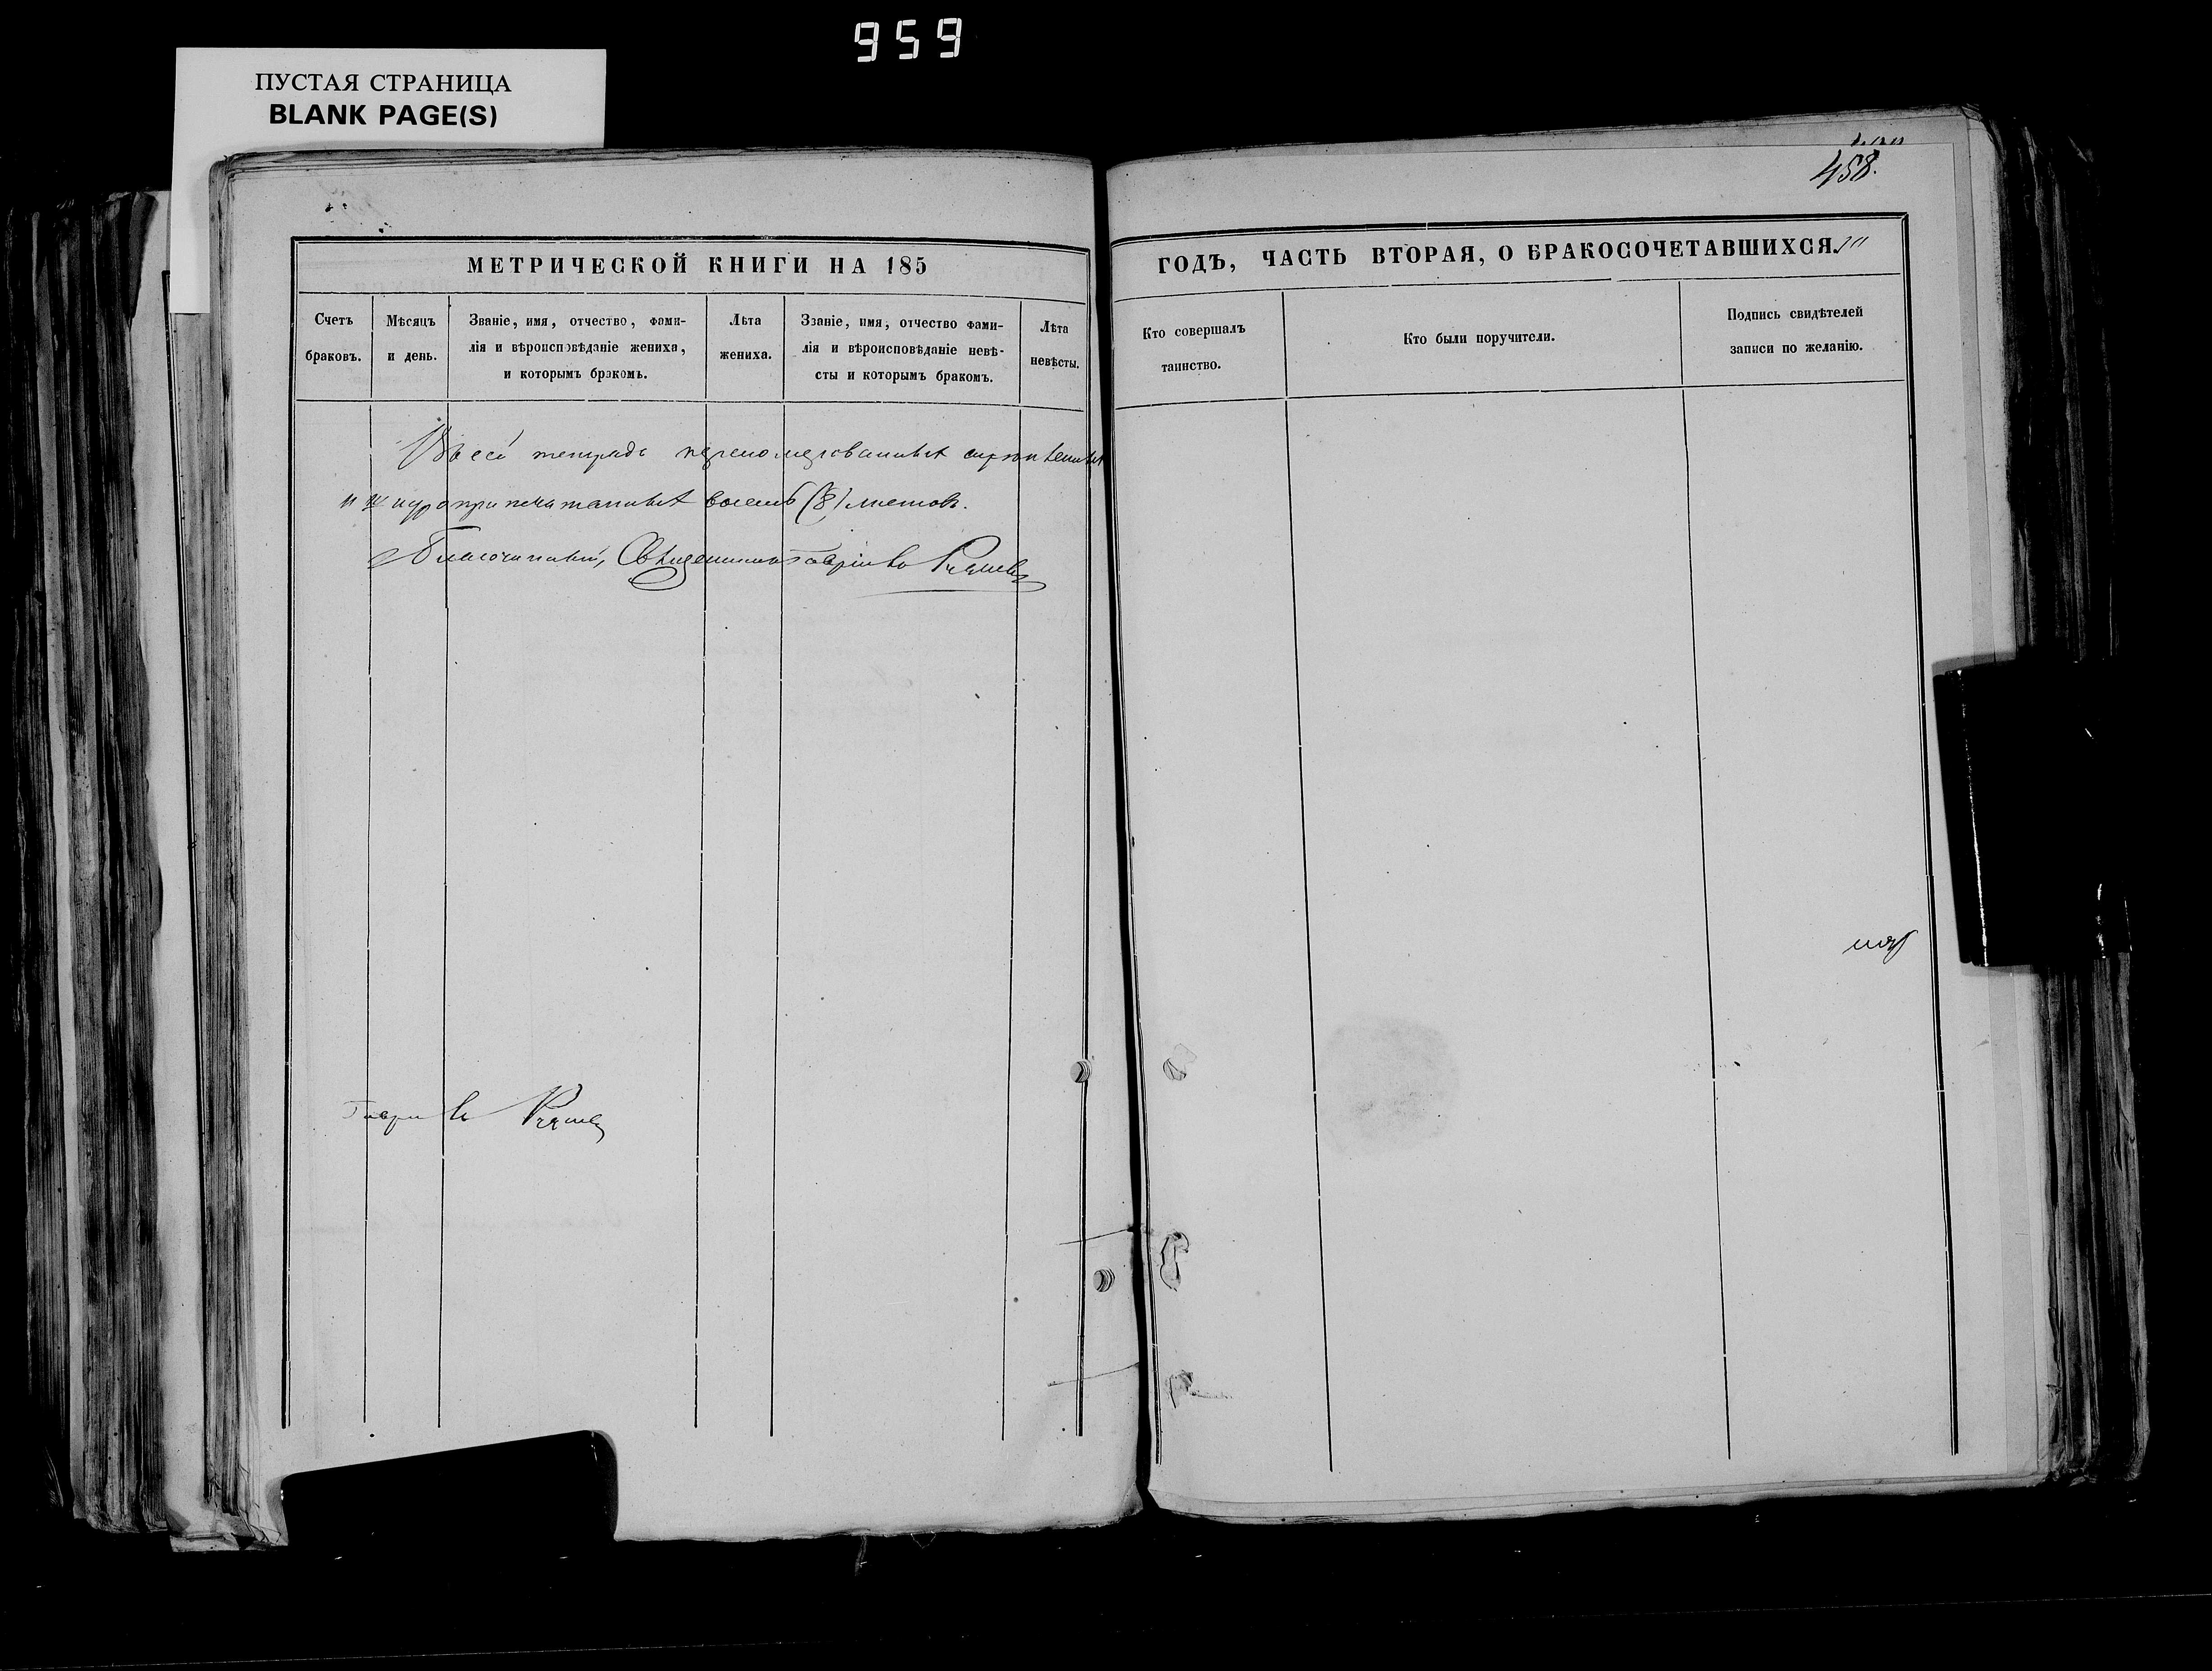 959
ПУСТАЯ СТРАНИЦА
BLANK PAGE(S)
458.
МЕТРИЧЕСКОЙ КНИГИ НА 185
Счетъ браковъ.
Мѣсяцъ и день.
Званіе, имя, отчество, фами-
лія и вѣроисповѣданіе жениха,
и которымъ бракомъ.
Лѣта жениха.
Званіе, имя, отчество фами-
лія и вѣроисповѣданіе невѣ-
сты и которымъ бракомъ.
Лѣта невѣсты.
ГОДЪ, ЧАСТЬ ВТОРАЯ, О БРАКОСОЧЕТАВШИХСЯ.
Кто совершалъ
таинство.
Кто были поручители.
Подпись свидѣтелей
записи по желанію.
Въ сей тетради переномерованныхъ скрѣпленныхъ
и шнуроприпечатанныхъ восемь (8) листовъ.
Благочинный, Священникъ Гавріилъ
Гавриилъ